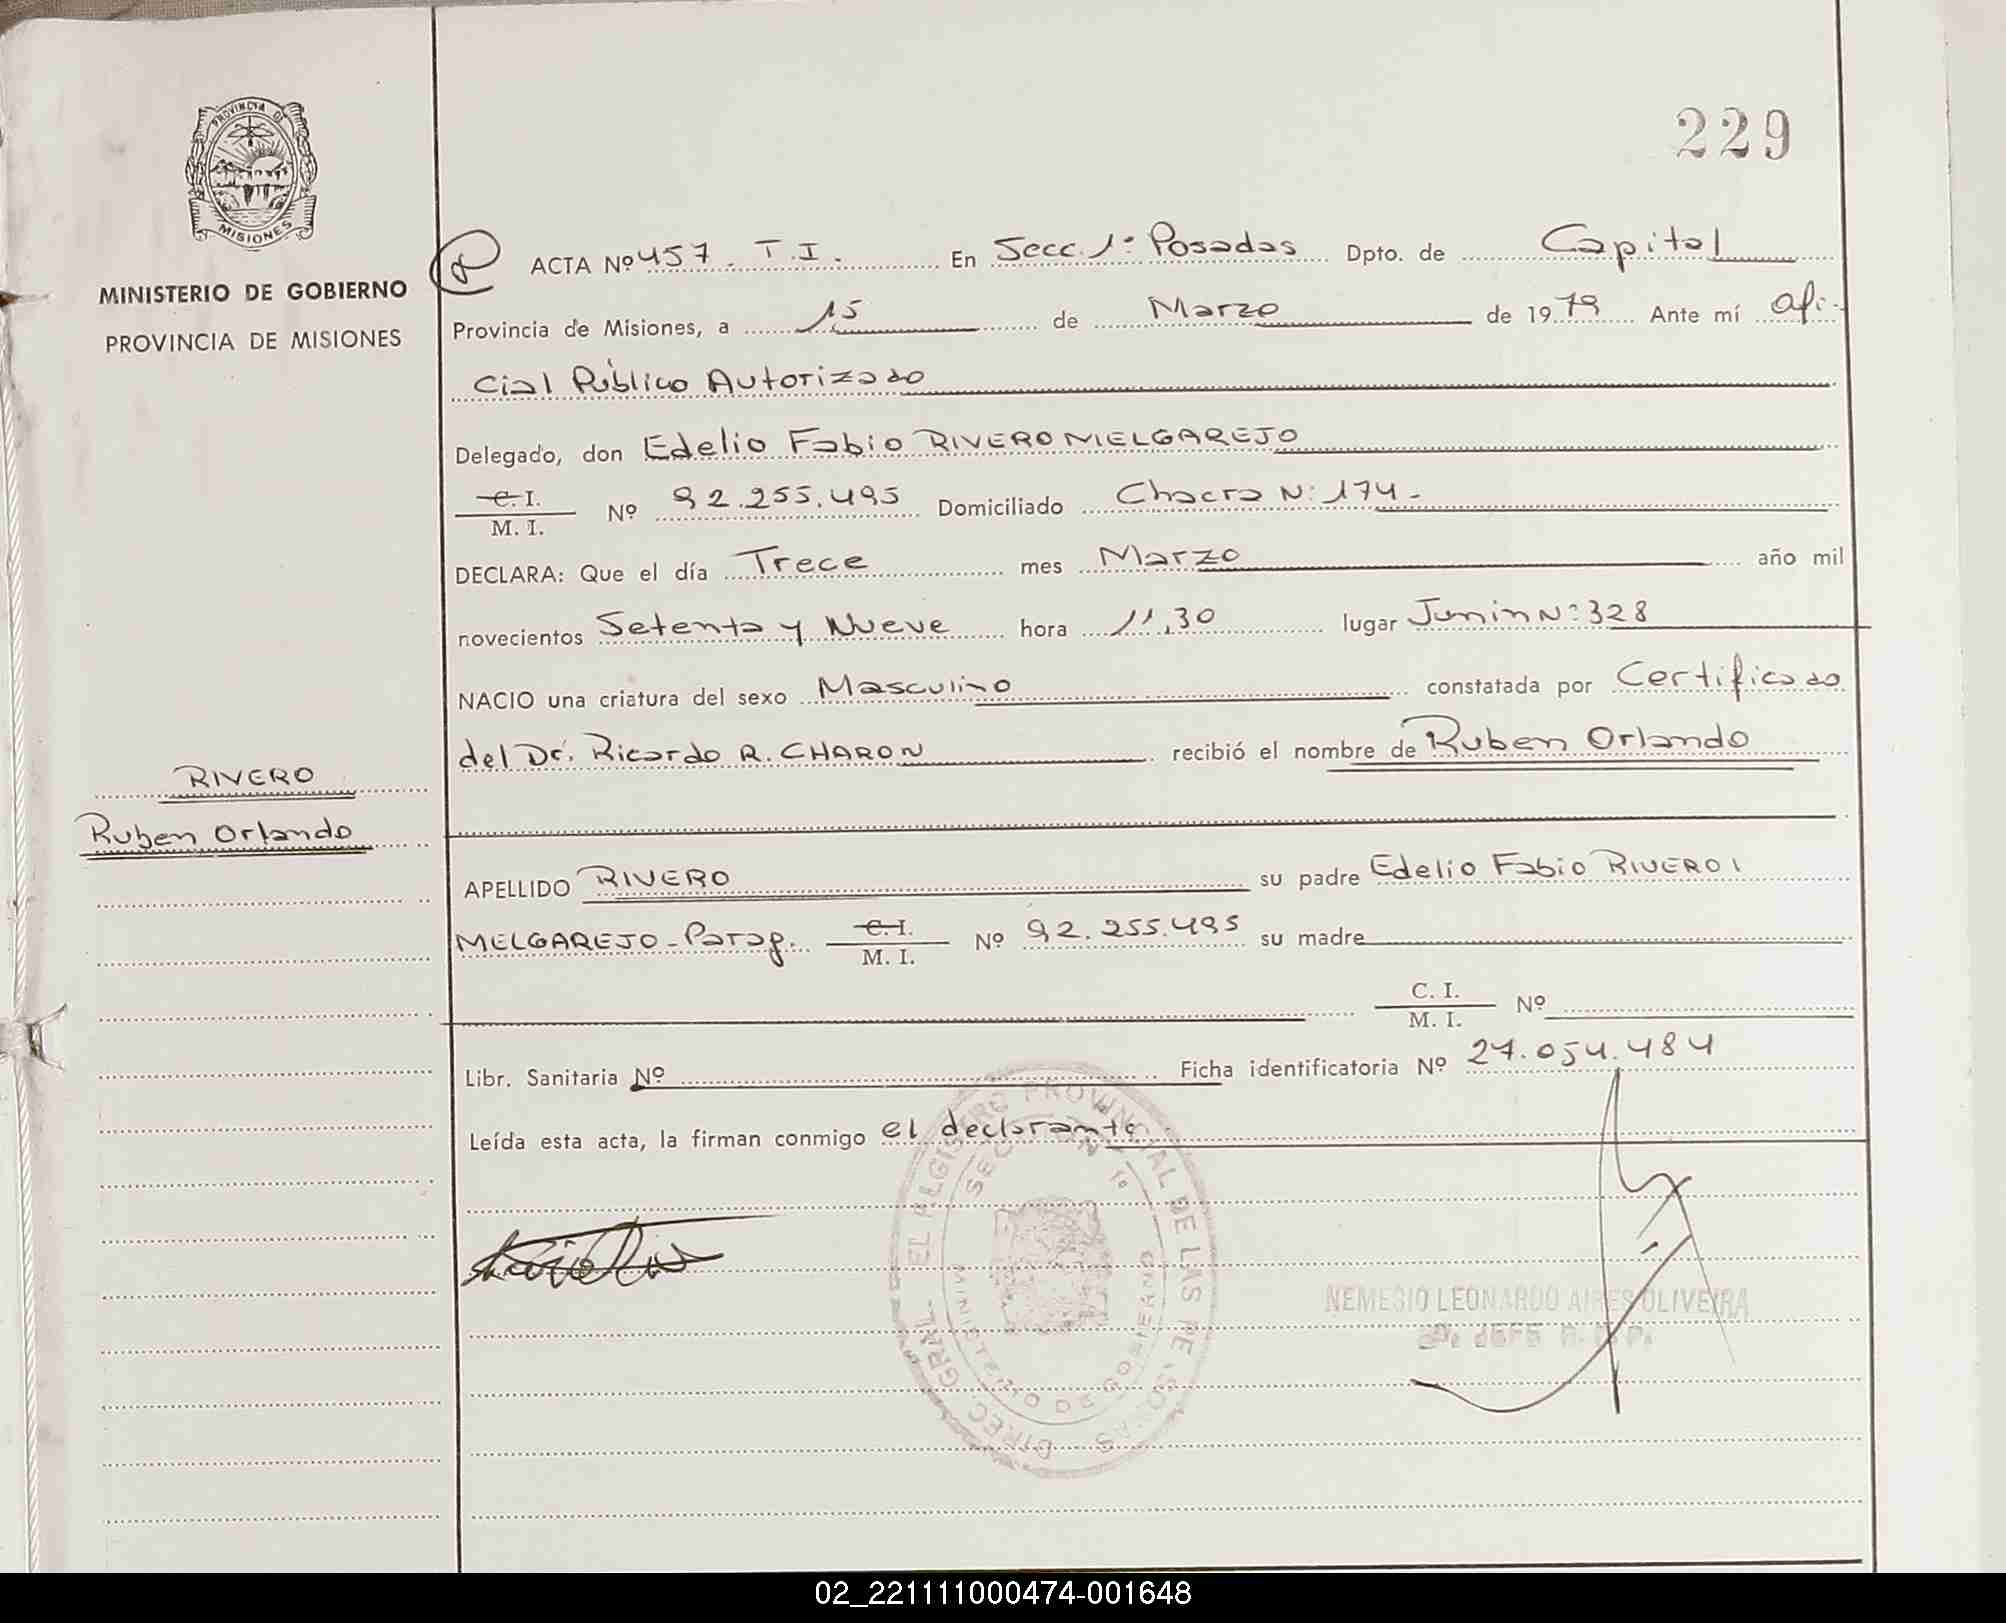 229
PROVINCIA DE
MISIONES
MINISTERIO DE GOBIERNO
PROVINCIA DE MISIONES
ACTA Nº 457. T.I. En Secc. 1ª Posadas Dpto. de Capital
Provincia de Misiones, a 15 de Marzo de 1979 Ante mí Ofi-
cial Público Autorizado
Delegado, don Edelio Fabio RIVERO MELGAREJO
C. I.
M. I. Nº 92.255.495 Domiciliado Chacra Nº 174.-
DECLARA: Que el día Trece mes Marzo año mil
novecientos Setenta y Nueve hora 11,30 lugar Junin Nº 328
NACIO una criatura del sexo Masculino constatada por Certificado
del Dr. Ricardo R. CHARON recibió el nombre de Ruben Orlando
RIVERO
Ruben Orlando
APELLIDO RIVERO su padre Edelio Fabio RIVERO
MELGAREJO - Parag. C. I.
M. I. Nº 92.255.495 su madre
C. I.
M. I. Nº
Libr. Sanitaria Nº Ficha identificatoria Nº 27.054.484
Leída esta acta, la firman conmigo el declarante.
DIREC. GRAL. REGISTRO PROVINCIAL DE LAS PERSONAS
MINISTERIO DE GOBIERNO
NEMESIO LEONARDO AIRES OLIVEIRA
02_221111000474-001648